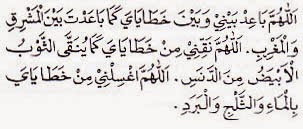 اَللّٰهُمَّ بَاعِدْ بَيْنِيْ وَبَيْنَ خَطَايَايَ كَمَا بَاعَدْتَ بَيْنَ الْمَشْرِقِ
وَالْمَغْرِبِ. اَللّٰهُمَّ نَقِّنِيْ مِنْ خَطَايَايَ كَمَا يُنَقَّى الثَّوْبُ
الْأَبْيَضُ مِنَ الدَّنَسِ. اَللّٰهُمَّ اغْسِلْنِيْ مِنْ خَطَايَايَ
بِالْمَاءِ وَالثَّلْجِ وَالْبَرَدِ.